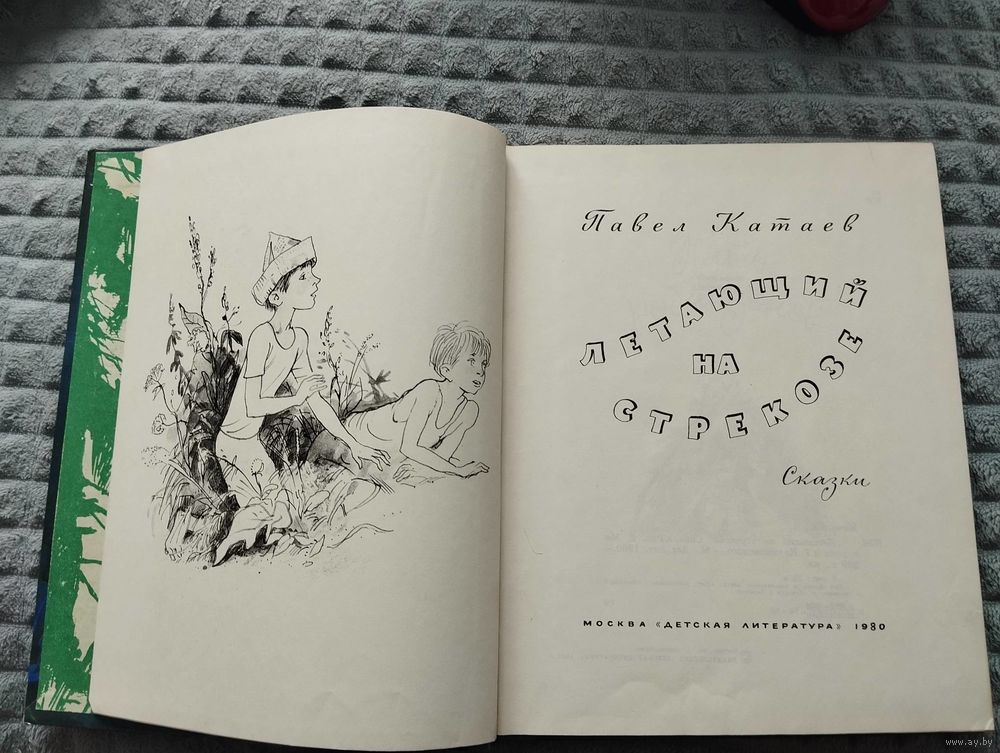 Павел Катаев
ЛЕТАЮЩИЙ
НА
СТРЕКОЗЕ
Сказки
МОСКВА «ДЕТСКАЯ ЛИТЕРАТУРА» 1980
www.ay.by